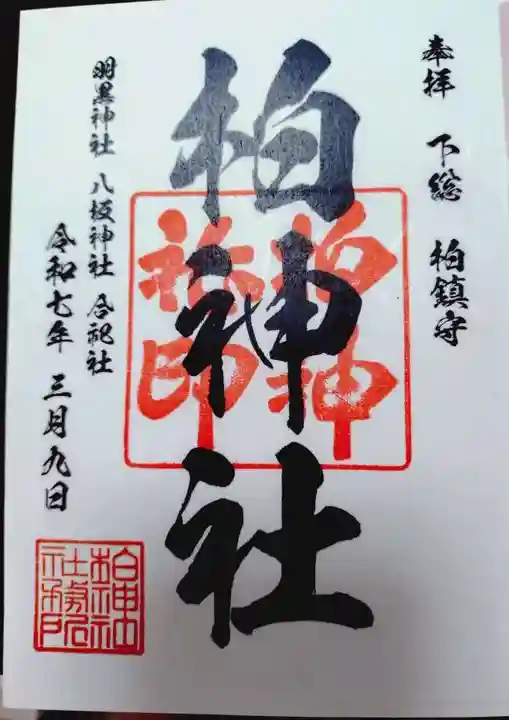 奉拝 下総 柏鎮守
柏神社
柏神
社印
羽黒神社 八坂神社 合祀社
令和七年 三月九日
柏神社
社務所